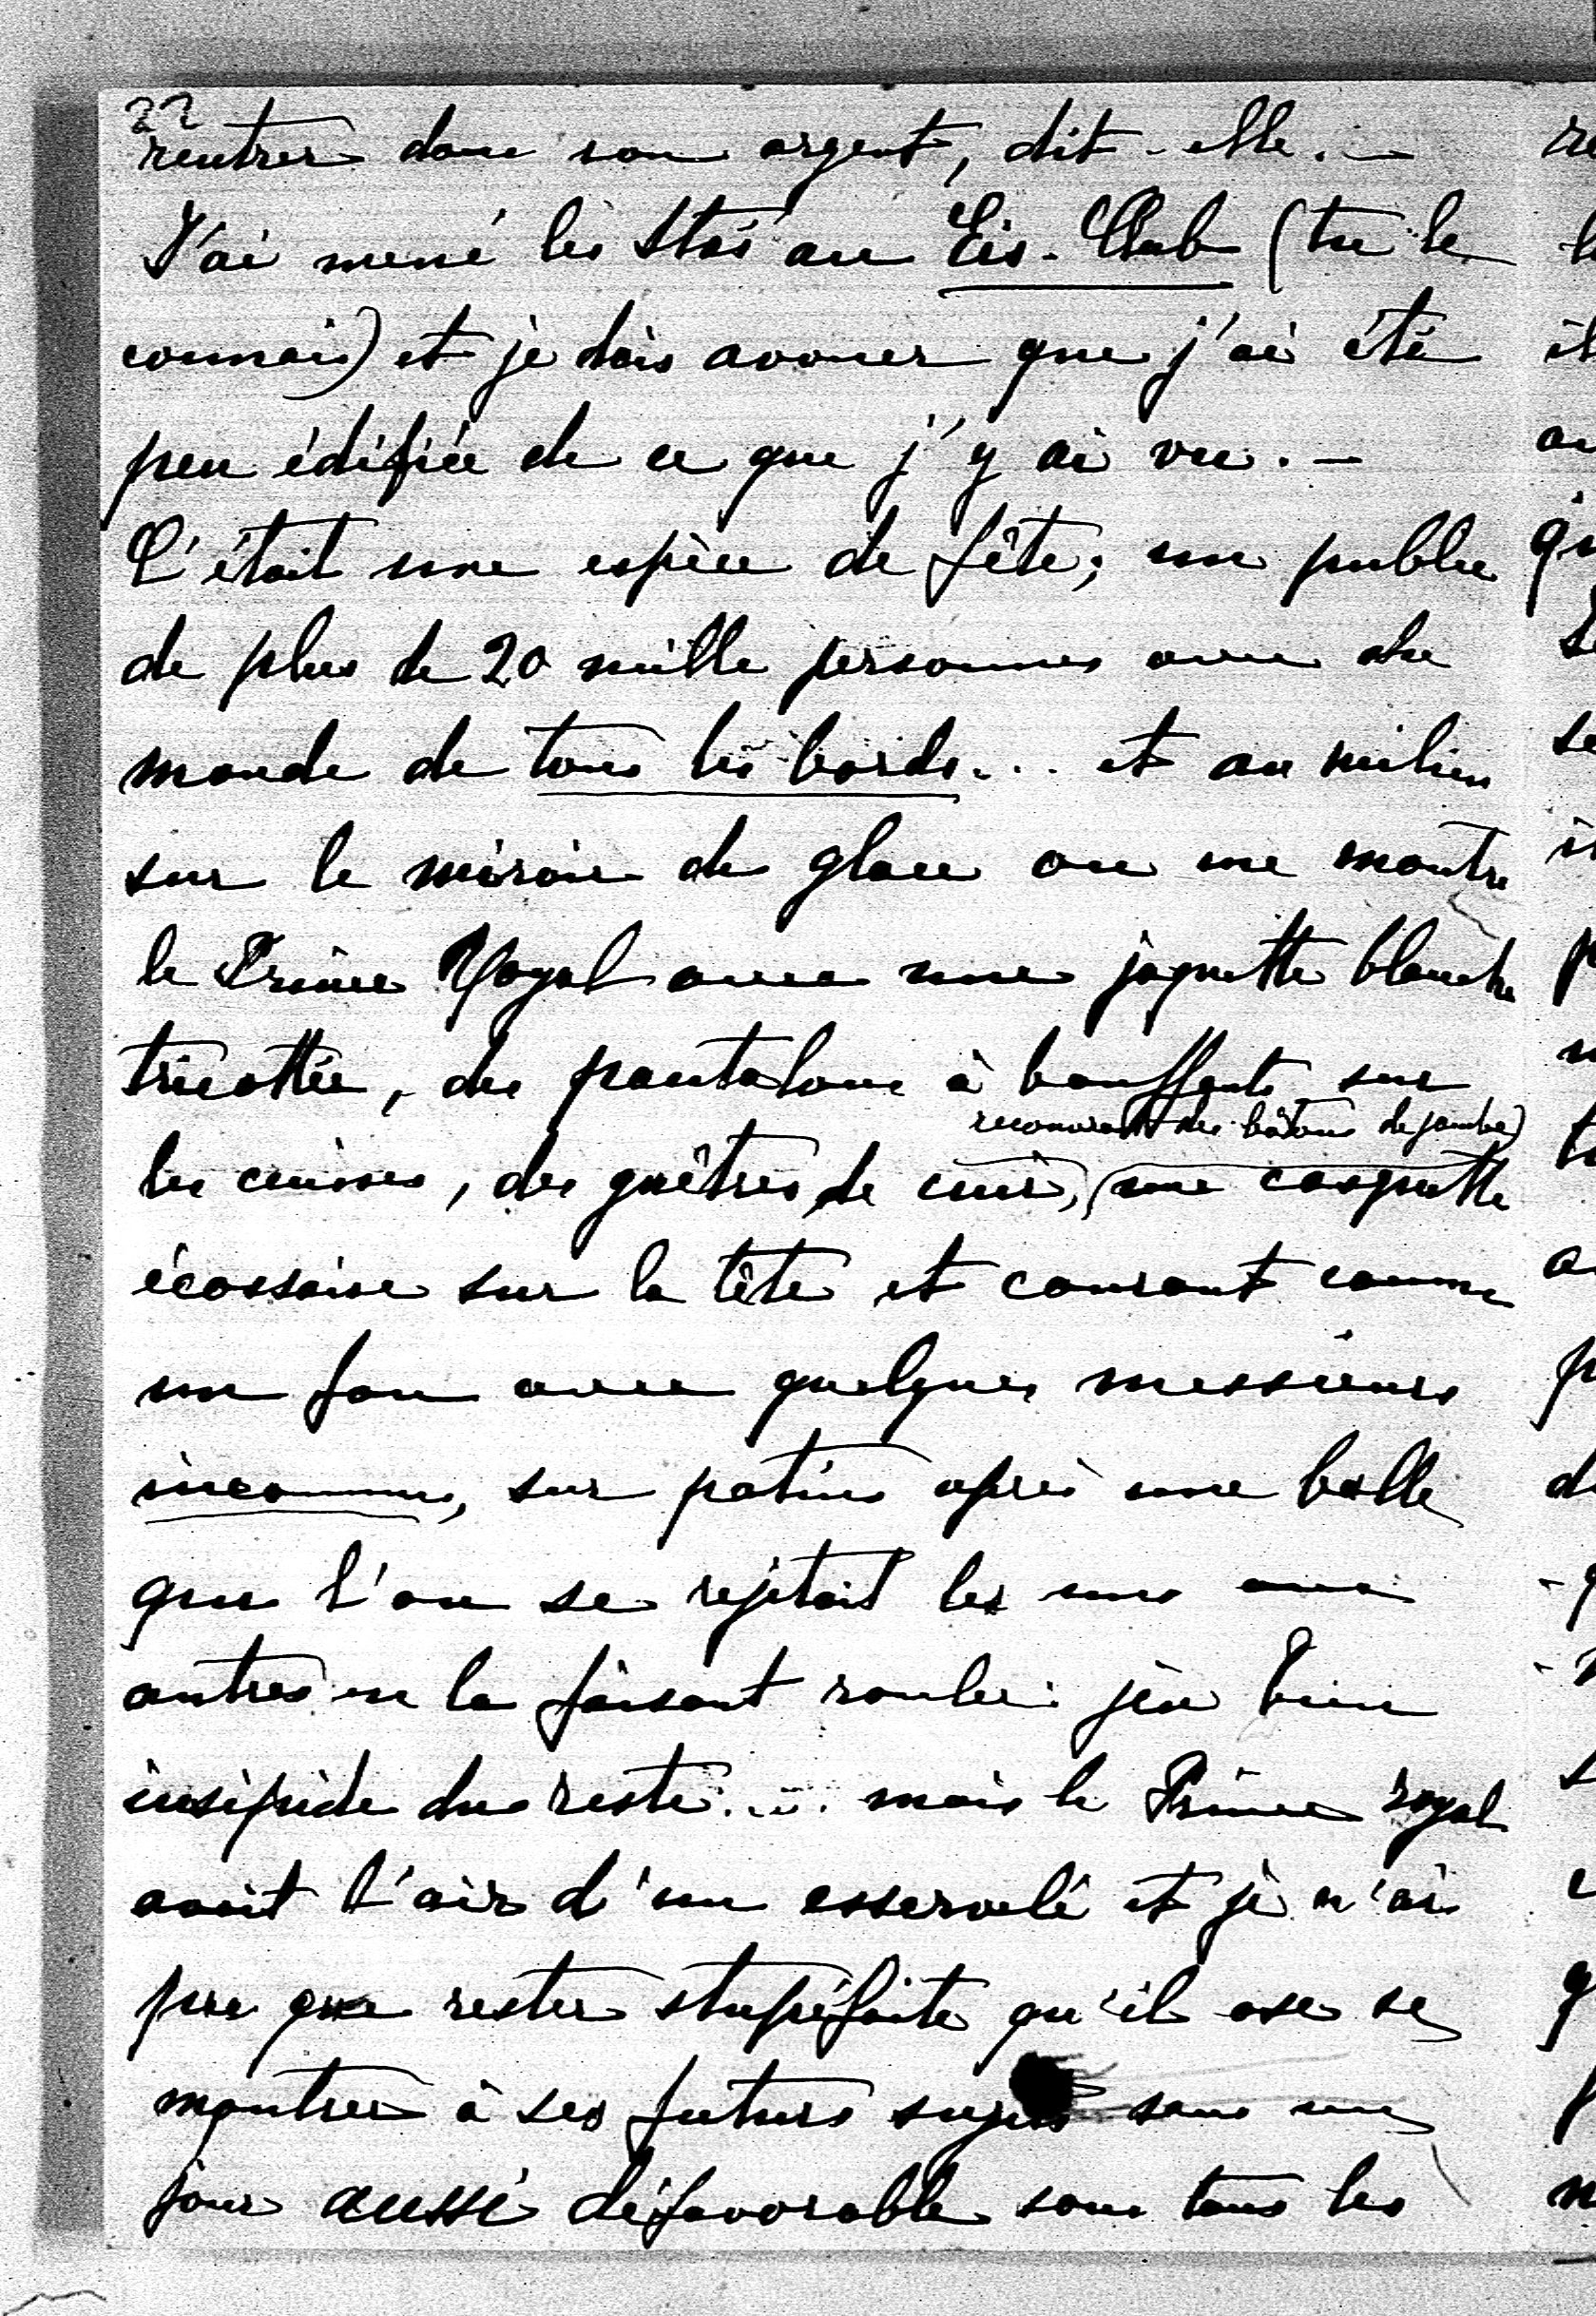 22
rentrer dans son argent, dit-elle. —
J'ai mené les Stas au Eis-Club (tu le
connais) et je dois avouer que j'ai été
peu édifiée de ce que j'y ai vu. —
C'était une espèce de fête; un public
de plus de 20 mille personnes avec du
monde de tous les bords... et au milieu
sur le miroir de glace on me montre
le Prince Royal avec une jaquette blanche
tricottée, des pantalons à bouffants sur
recouvrant des bâtons de jambe)
les cuisses, des guêtres de cuir, (une casquette
écossaise sur la tête et courant comme
un fou avec quelques messieurs
inconnus, sur patins après une balle
que l'on se rejetait les uns aux
autres en la faisant rouler: jeu bien
insipide du reste.... mais le Prince royal
avait l'air d'un esservelé et je n'ai
pu que rester stupéfaite qu'il ose se
montrer à ses futurs sujets sous un
jour aussi défavorable sous tous les